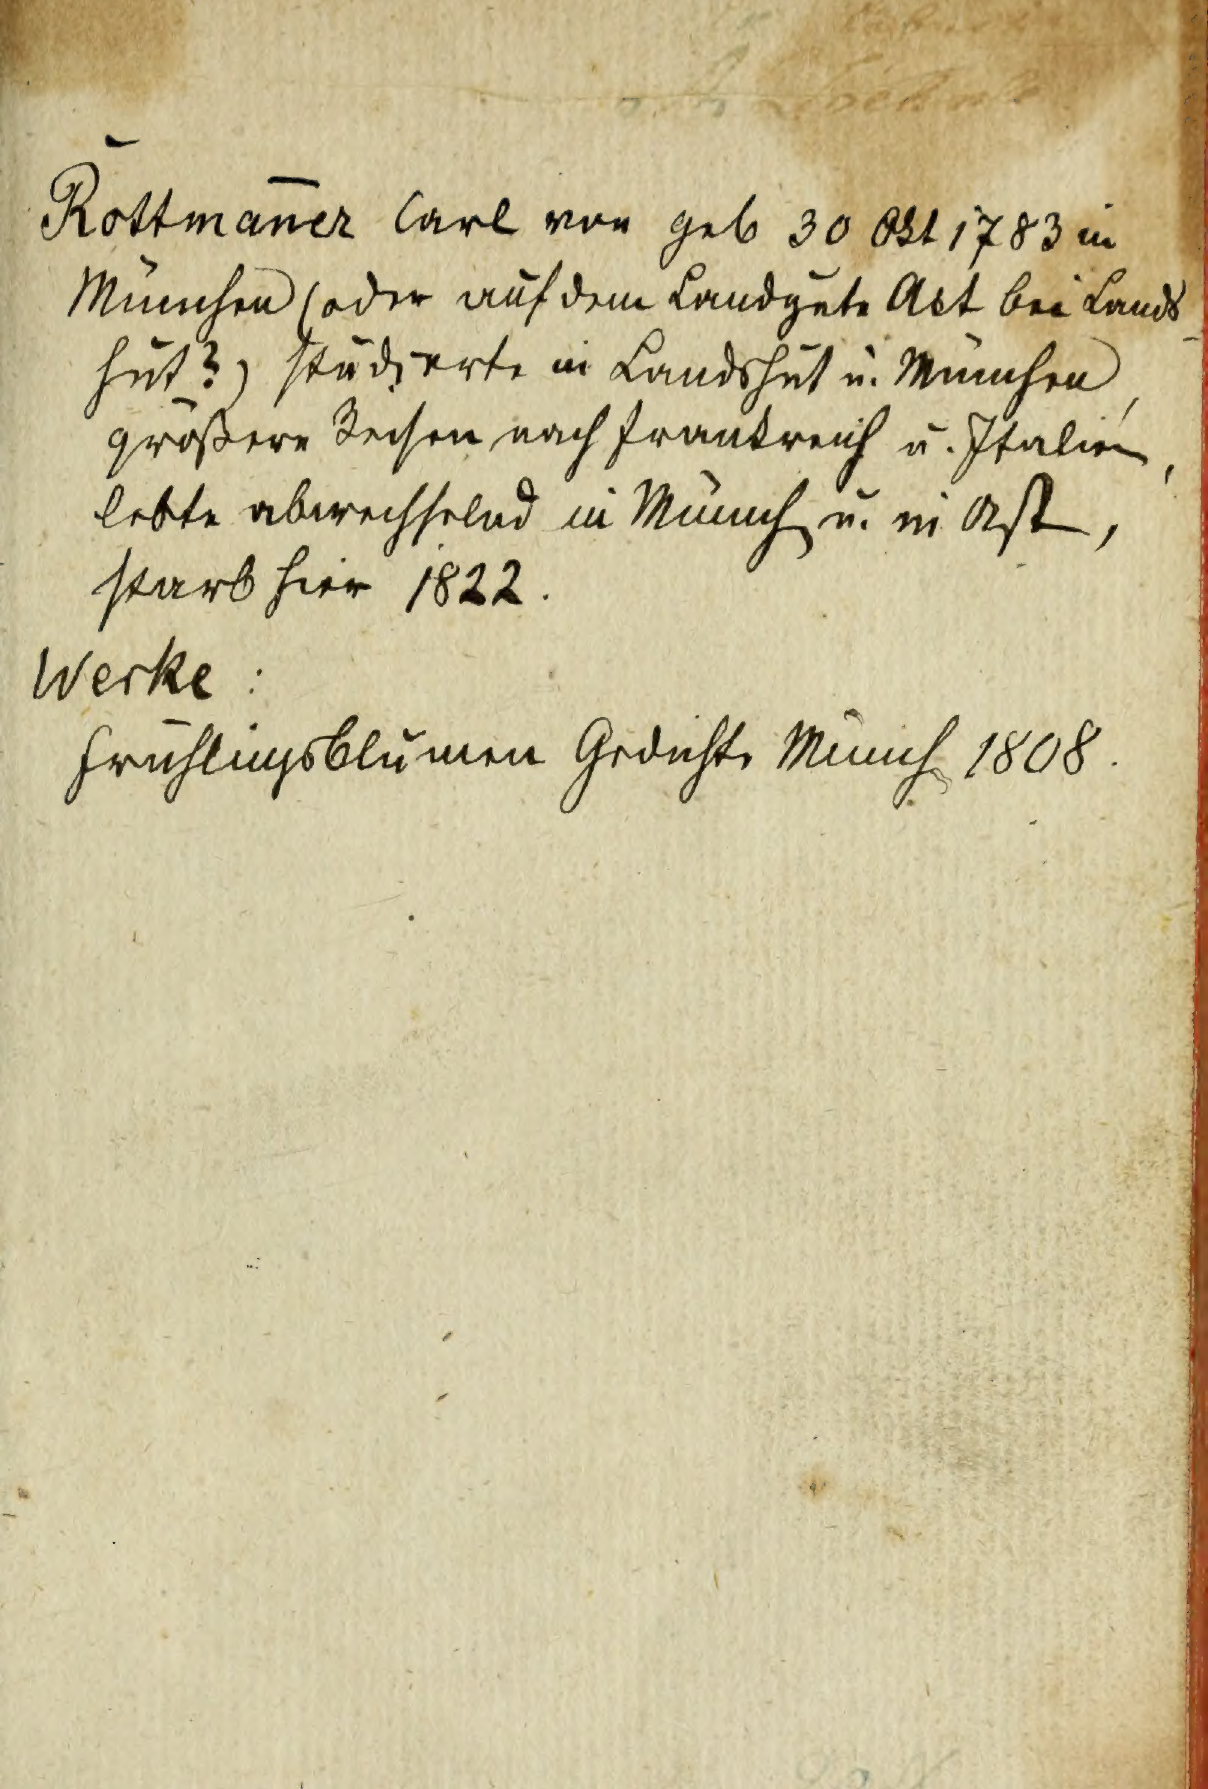 Rottman̄er Carl von geb 30 Okt 1783 in
München (oder auf dem Landgute Ast bei Lands
hut?) studierte in Landshut u. München,
größere Reisen nach Frankreich u. Italien,
lebte abwechselnd in Münch u. in Ast,
starb hier 1822.
Werke:
Frühlingsblumen Gedichte Münch 1808.